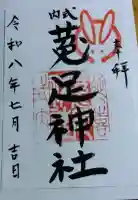 奉拝
内式
菟足神社
令和八年七月吉日